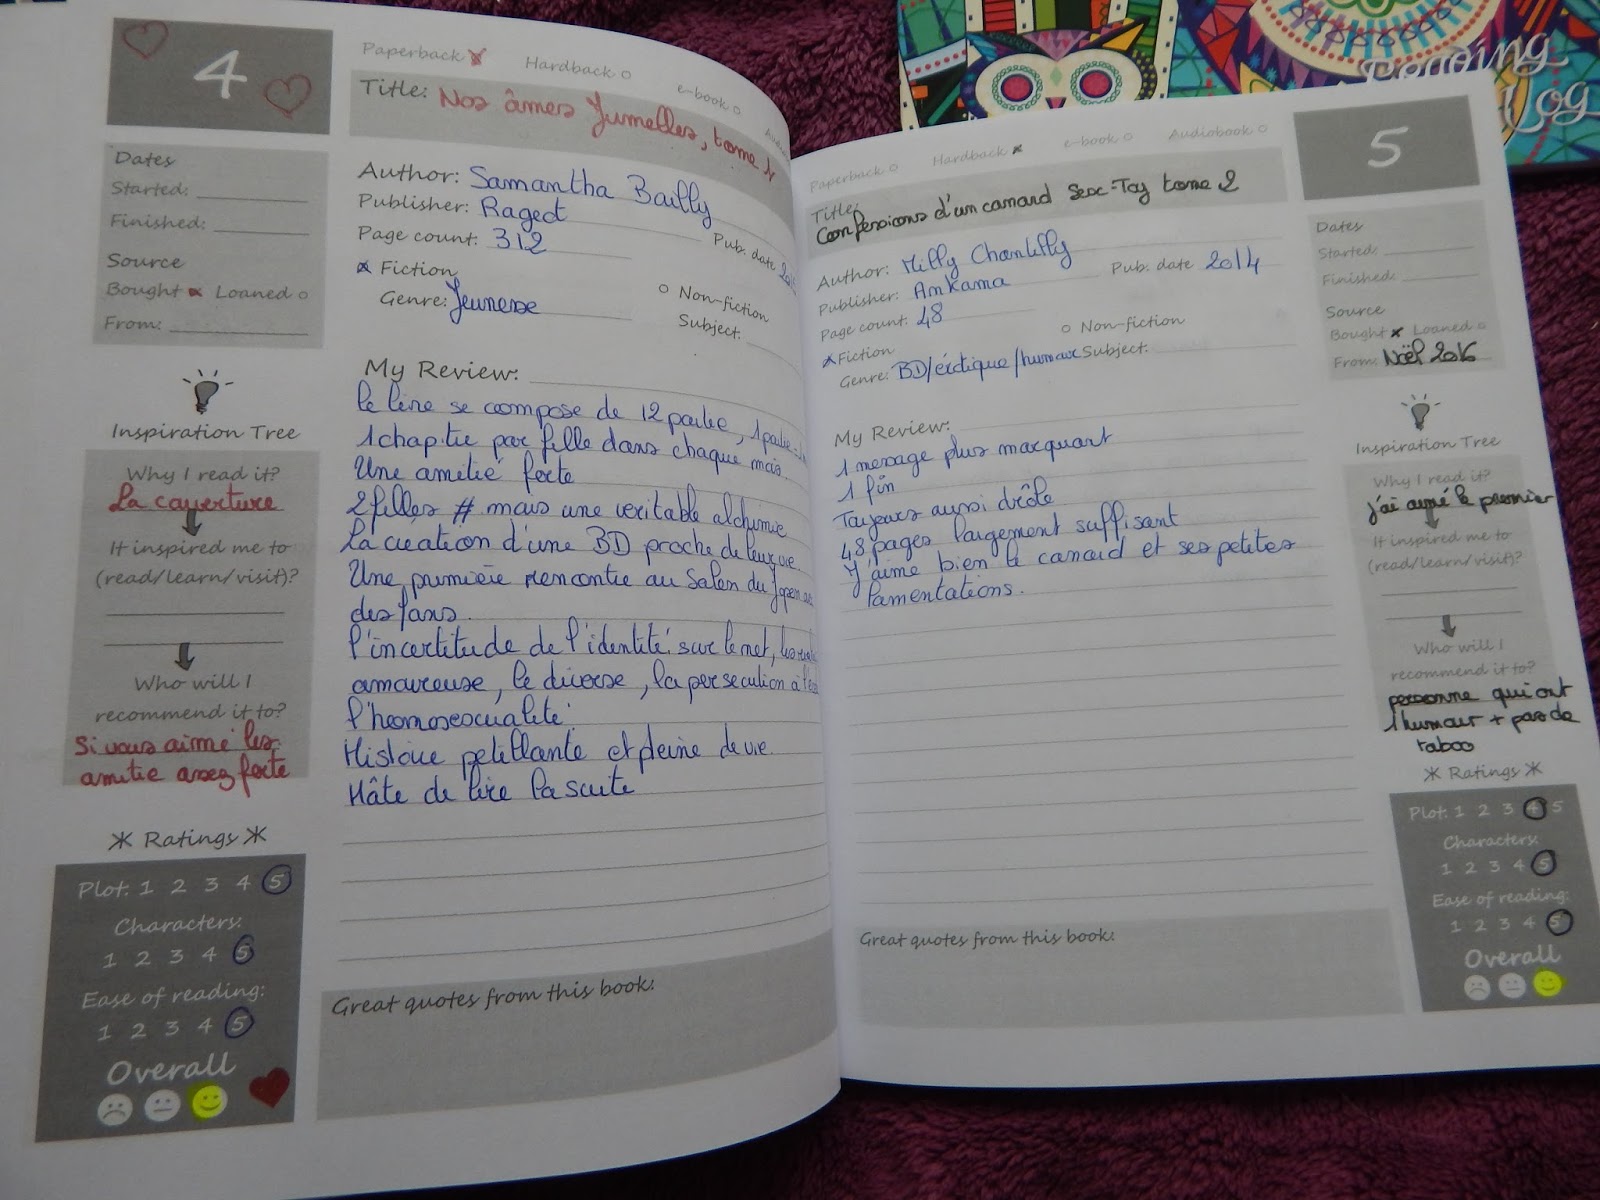 4
Paperback
Hardback
e-book
Title: Nos âmes Jumelles, tome 1
Dates
Started:
Finished:
Source
Bought Loaned
From:
Author: Samantha Bailly
Publisher: Rageot
Pub. date
Page count: 312
Fiction
Non-fiction
Genre: Jeunesse
Subject:
Inspiration Tree
Why I read it?
La couverture
It inspired me to
(read/learn/visit)?
Who will I
recommend it to?
Si vous aimé les
amitie assez forte
My Review:
Le livre se compose de 12 partie, 1 partie =
1 chapitre par fille dans chaque mois.
Une amitié forte
2 filles # mais une veritable alchimie
La création d'une BD proche de leur vie.
Une première rencontre au salon du Japon
des fans.
l'incertitude de l'identité sur le net, les
amoureuse, le divorse, la persecution à
l'homosexualité
Histoire petillante et pleine de vie.
Hâte de lire la suite
Ratings
Plot: 1 2 3 4 5
Characters:
1 2 3 4 5
Ease of reading:
1 2 3 4 5
Overall
Great quotes from this book:
Reading
Log
5
Paperback
Hardback
e-book
Audiobook
Title:
Confessions d'un canard Sex-Toy tome 2
Author: Milly Chantilly
Publisher: Ankama
Pub. date 2014
Page count: 48
Fiction
Non-fiction
Genre: BD/érotique/humour Subject:
Dates
Started:
Finished:
Source
Bought Loaned
From: Noël 2016
My Review:
1 message plus marquant
1 fin
Toujours aussi drôle
48 pages largement suffisant
J'aime bien le canard et ses petites
lamentations.
Inspiration Tree
Why I read it?
j'ai aimé le premier
It inspired me to
(read/learn/visit)?
Who will I
recommend it to?
personne qui ont
1 humour + pas de
taboo
Ratings
Plot: 1 2 3 4 5
Characters:
1 2 3 4 5
Ease of reading:
1 2 3 4 5
Overall
Great quotes from this book: